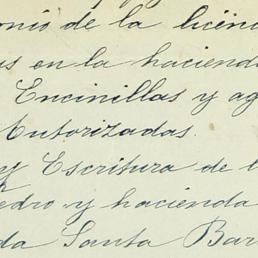 onio de la licen
as en la haciend
Encinillas y ag
Autorizadas.
y Escritura de l
edro y hacienda
da Santa Bar